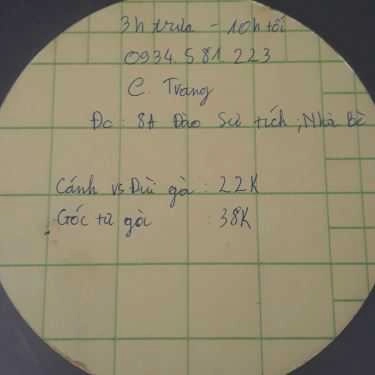 3h trưa - 10h tối
0934 581 223
C. Trang
Đc: 8A Đào Sư tích, Nhà Bè
Cánh vs Đùi gà: 22K
Góc tư gà : 38K